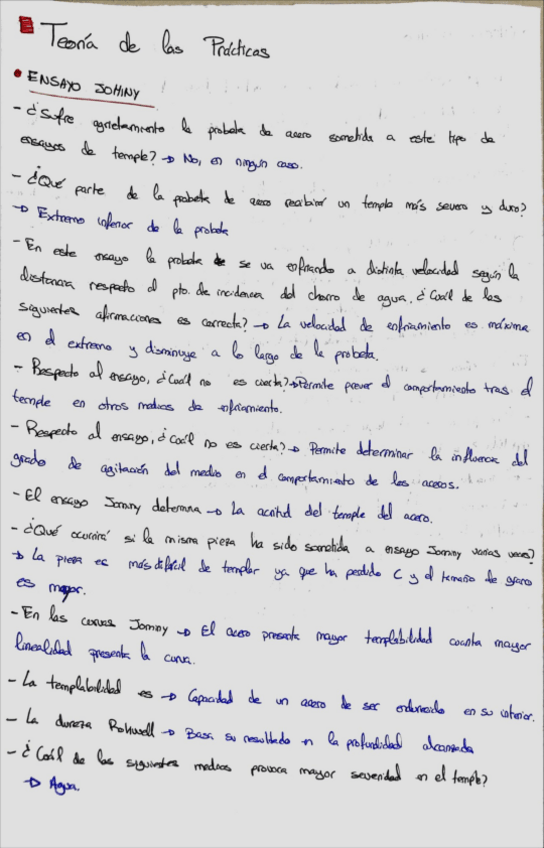 Teoría de las Prácticas
• ENSAYO JOMINY
- ¿Sufre agrietamiento la probeta de acero sometida a este tipo de
ensayos de temple? → No, en ningún caso.
- ¿Qué parte de la probeta de acero recibirá un temple más severo y duro?
→ Extremo inferior de la probeta
- En este ensayo la probeta se va enfriando a distinta velocidad según la
distancia respecto al pto. de incidencia del chorro de agua. ¿Cuál de las
siguientes afirmaciones es correcta? → La velocidad de enfriamiento es máxima
en el extremo y disminuye a lo largo de la probeta.
- Respecto al ensayo, ¿Cuál no es cierta? → Permite prever el comportamiento tras el
temple en otros medios de enfriamiento.
- Respecto al ensayo, ¿Cuál no es cierta? → Permite determinar la influencia del
grado de agitación del medio en el comportamiento de los aceros.
- El ensayo Jominy determina → La acritud del temple del acero.
- ¿Qué ocurrirá si la misma pieza ha sido sometida a ensayo Jominy varias veces?
→ La pieza es más difícil de templar ya que ha perdido C y el tamaño de grano
es mayor.
- En las curvas Jominy → El acero presenta mayor templabilidad cuanta mayor
linealidad presenta la curva.
- La templabilidad es → Capacidad de un acero de ser endurecido en su interior.
- La dureza Rockwell → Basa su resultado en la profundidad alcanzada
- ¿Cuál de los siguientes medios provoca mayor severidad en el temple?
→ Agua.